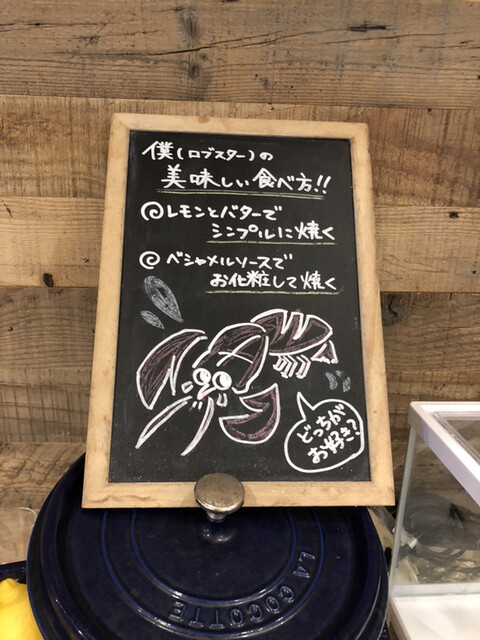 僕(ロブスター)の
美味しい食べ方!!
レモンとバターで
シンプルに焼く
ベシャメルソースで
お化粧して焼く
どっちが
お好き?
LA COCOTTE